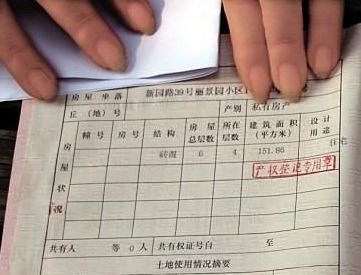 房屋坐落 新园路39号丽景园小区
丘(地)号 产别 私有房产
幢号 房号 结构 房屋总层数 所在层数 建筑面积(平方米) 设计用途
房屋状况 砖混 6 4 151.86 住宅
产权登记专用章
共有人 等 0 人 共有权证号自 至
土地使用情况摘要